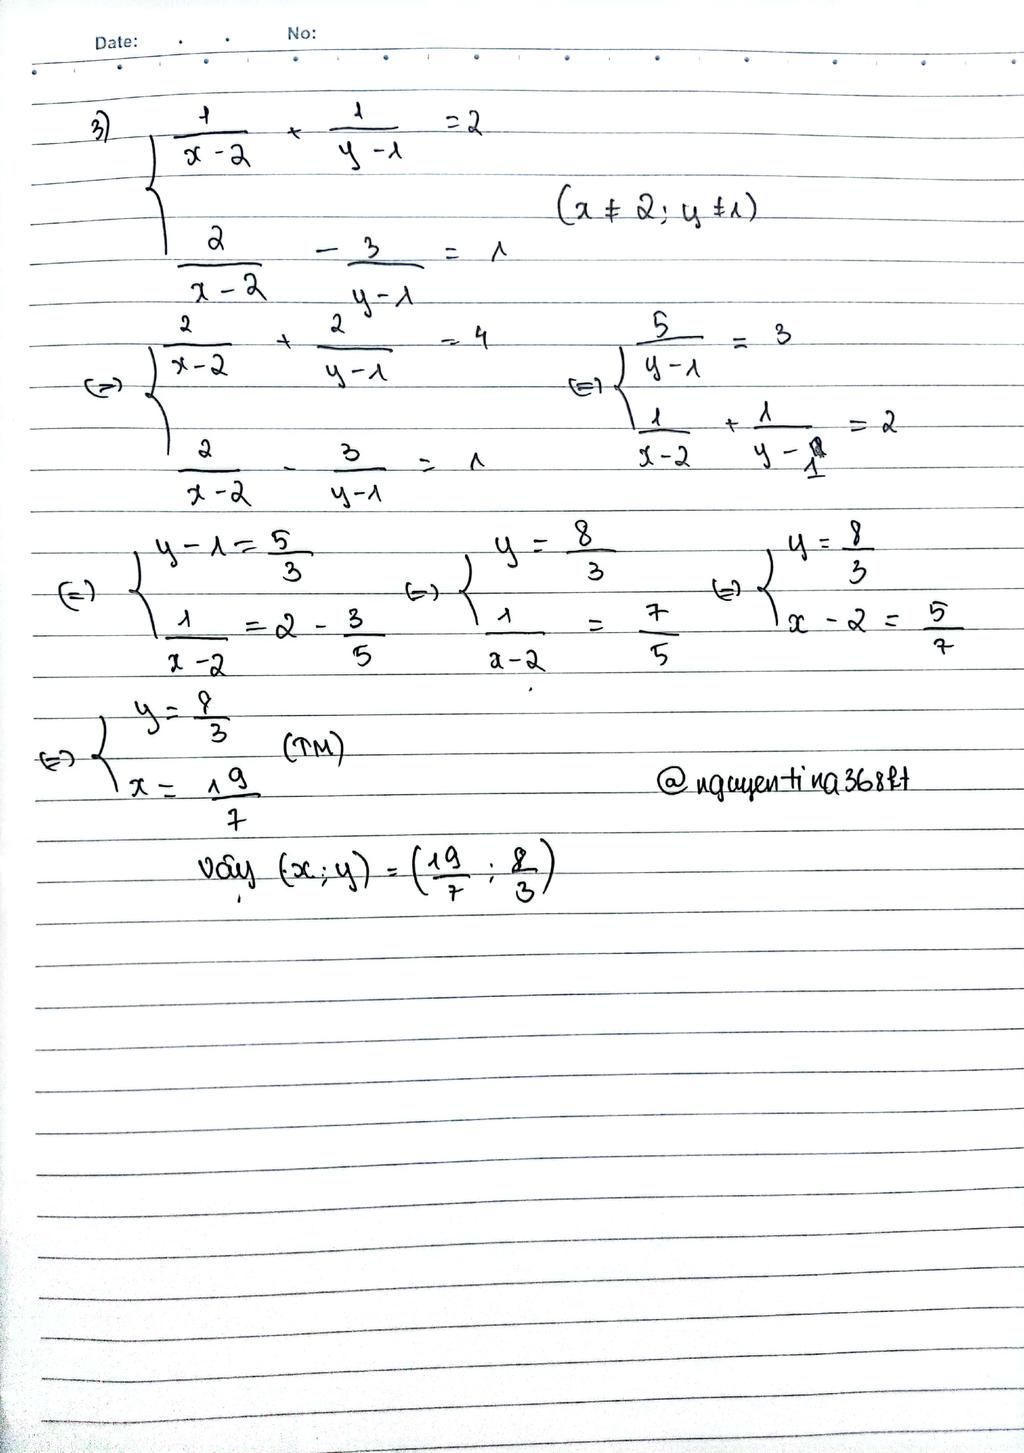 Date: No:
3) { 1/(x-2) + 1/(y-1) = 2
2/(x-2) - 3/(y-1) = 1 (x ≠ 2; y ≠ 1)
(=) { 2/(x-2) + 2/(y-1) = 4
2/(x-2) - 3/(y-1) = 1
(=) { 5/(y-1) = 3
1/(x-2) + 1/(y-1) = 2
(=) { y - 1 = 5/3
1/(x-2) = 2 - 3/5
(=) { y = 8/3
1/(x-2) = 7/5
(=) { y = 8/3
x - 2 = 5/7
(=) { y = 8/3
x = 19/7 (TM)
@nguyentina368kt
Vậy (x; y) = (19/7 ; 8/3)